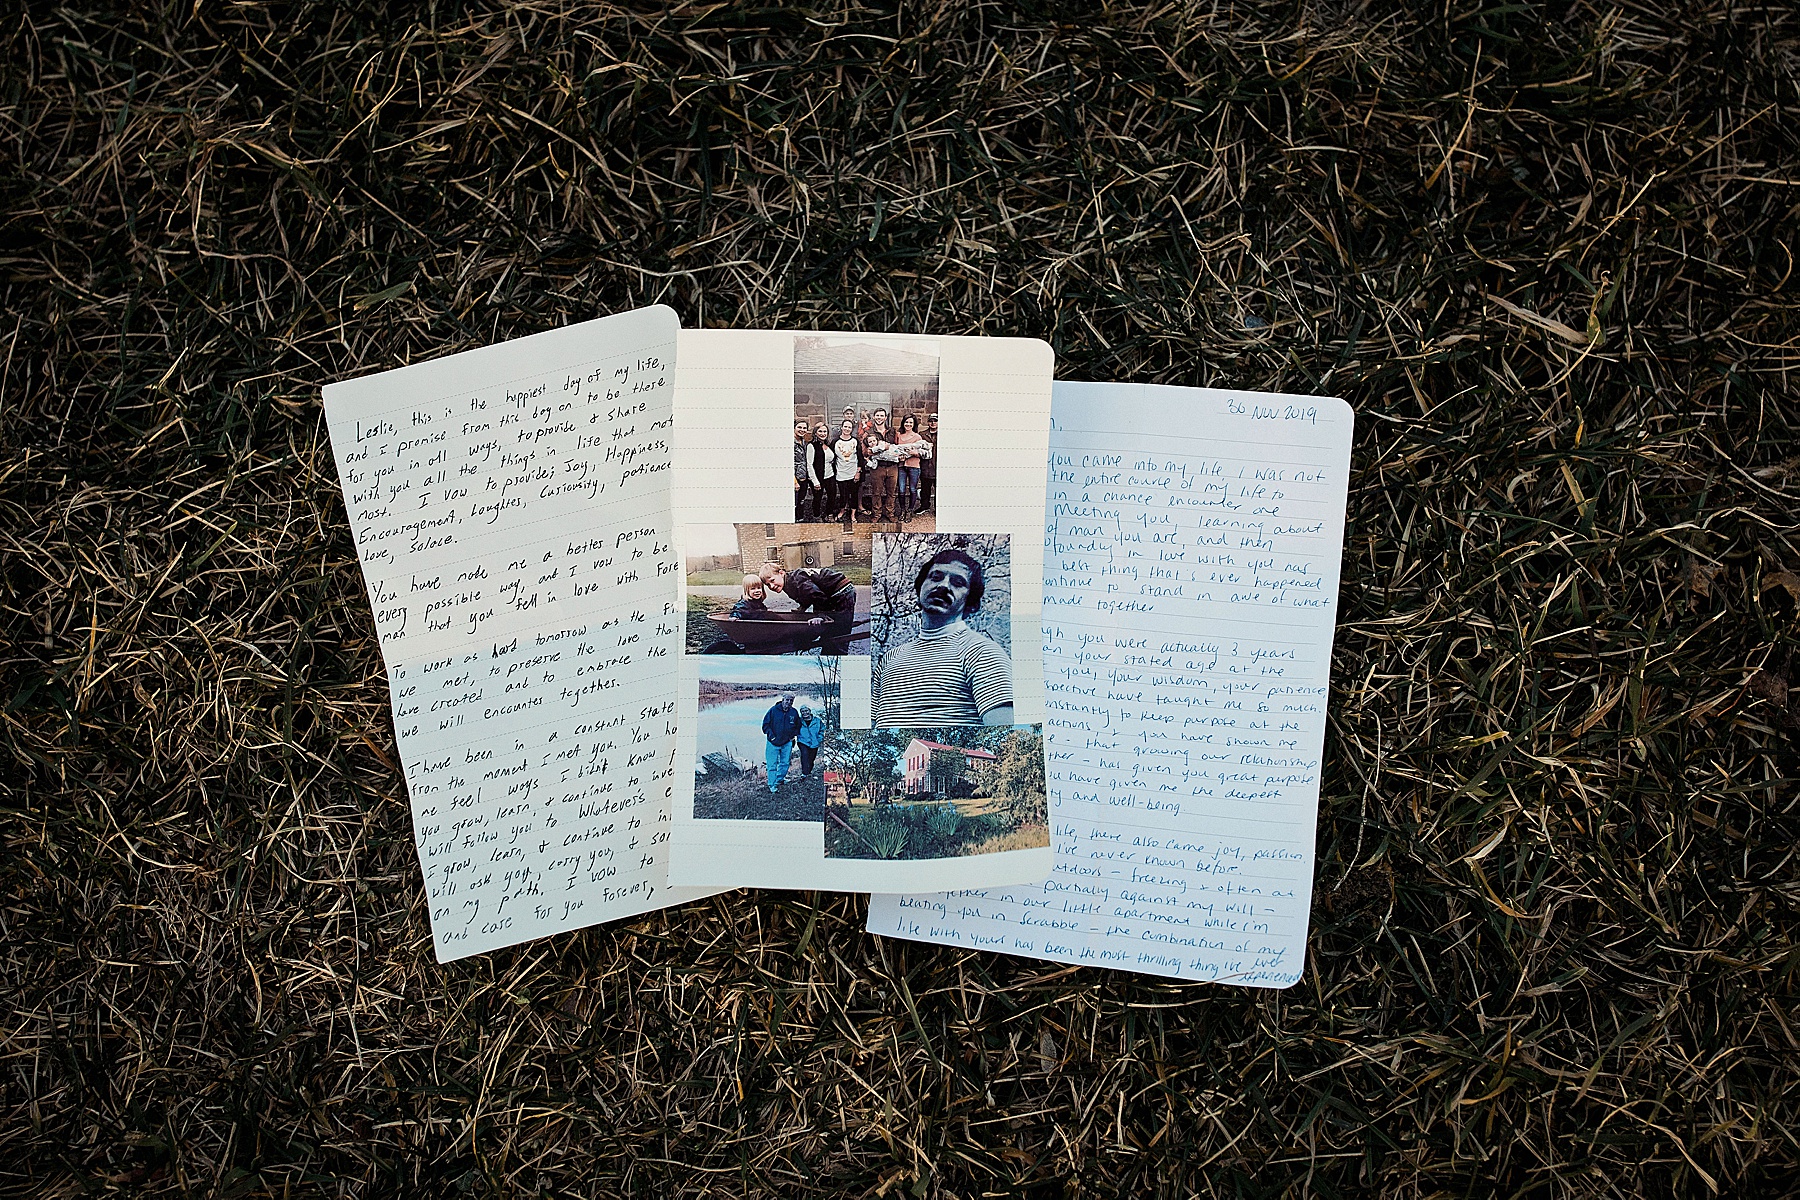 Leslie, this is the happiest day of my life,
and I promise from this day on to be there
for you in all ways, to provide & share
with you all the things in life that mat
most. I vow to provide; Joy, Happiness,
Encouragement, Laughter, Curiosity, patience
Love, Solace.
You have made me a better person
every possible way, and I vow to be
man that you fell in love with Fore
To work as hard tomorrow as the fi
we met, to preserve the love tha
have created and to embrace the
we will encounter together.
I have been in a constant state
from the moment I met you. You ha
me feel ways I didn't know
you grow, learn, & continue to inve
will follow you to whatever's e
I grow, learn, & continue to in
will ask you, carry you, & so
on my path. I vow to
and care for you forever,
30 NOV 2019
you came into my life I was not
the entire course of my life to
in a chance encounter one
Meeting you, learning about
of man you are, and then
foundly in love with you has
best thing that's ever happened
ontinue to stand in awe of what
made together
gh you were actually 3 years
an your stated age at the
you, your wisdom, your patience
spective have taught me so much.
onstantly to keep purpose at the
actions, & you have shown me
e - that growing our relationship
ther - has given you great purpose
u have given me the deepest
ty and well-being.
life, there also came joy, passion
I've never known before.
utdoors - freezing & often at
partially against my will -
ether in our little apartment while I'm
beating you in Scrabble - the combination of my
life with yours has been the most thrilling thing I've ever
experienced